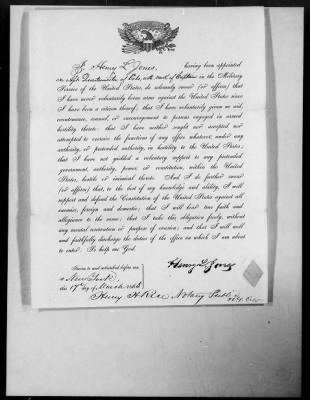 I, Henry L. Jones, having been appointed
of Vols, with rank of Captain in the Military
Service of the United States, do solemnly swear (or affirm) that
I have never voluntarily borne arms against the United States since
I have been a citizen thereof; that I have voluntarily given no aid,
countenance, counsel, or encouragement to persons engaged in armed
hostility thereto; that I have neither sought nor accepted nor
attempted to exercise the functions of any office whatever, under any
authority, or pretended authority, in hostility to the United States;
that I have not yielded a voluntary support to any pretended
government, authority, power, or constitution, within the United
States, hostile or inimical thereto. And I do further swear
(or affirm) that, to the best of my knowledge and ability, I will
support and defend the Constitution of the United States against all
enemies, foreign and domestic; that I will bear true faith and
allegiance to the same; that I take this obligation freely, without
any mental reservation or purpose of evasion; and that I will well
and faithfully discharge the duties of the office on which I am about
to enter: So help me God.
Henry L. Jones
Sworn to and subscribed before me,
at New York,
this 17th day of March 186
Henry H. Rice Notary Public